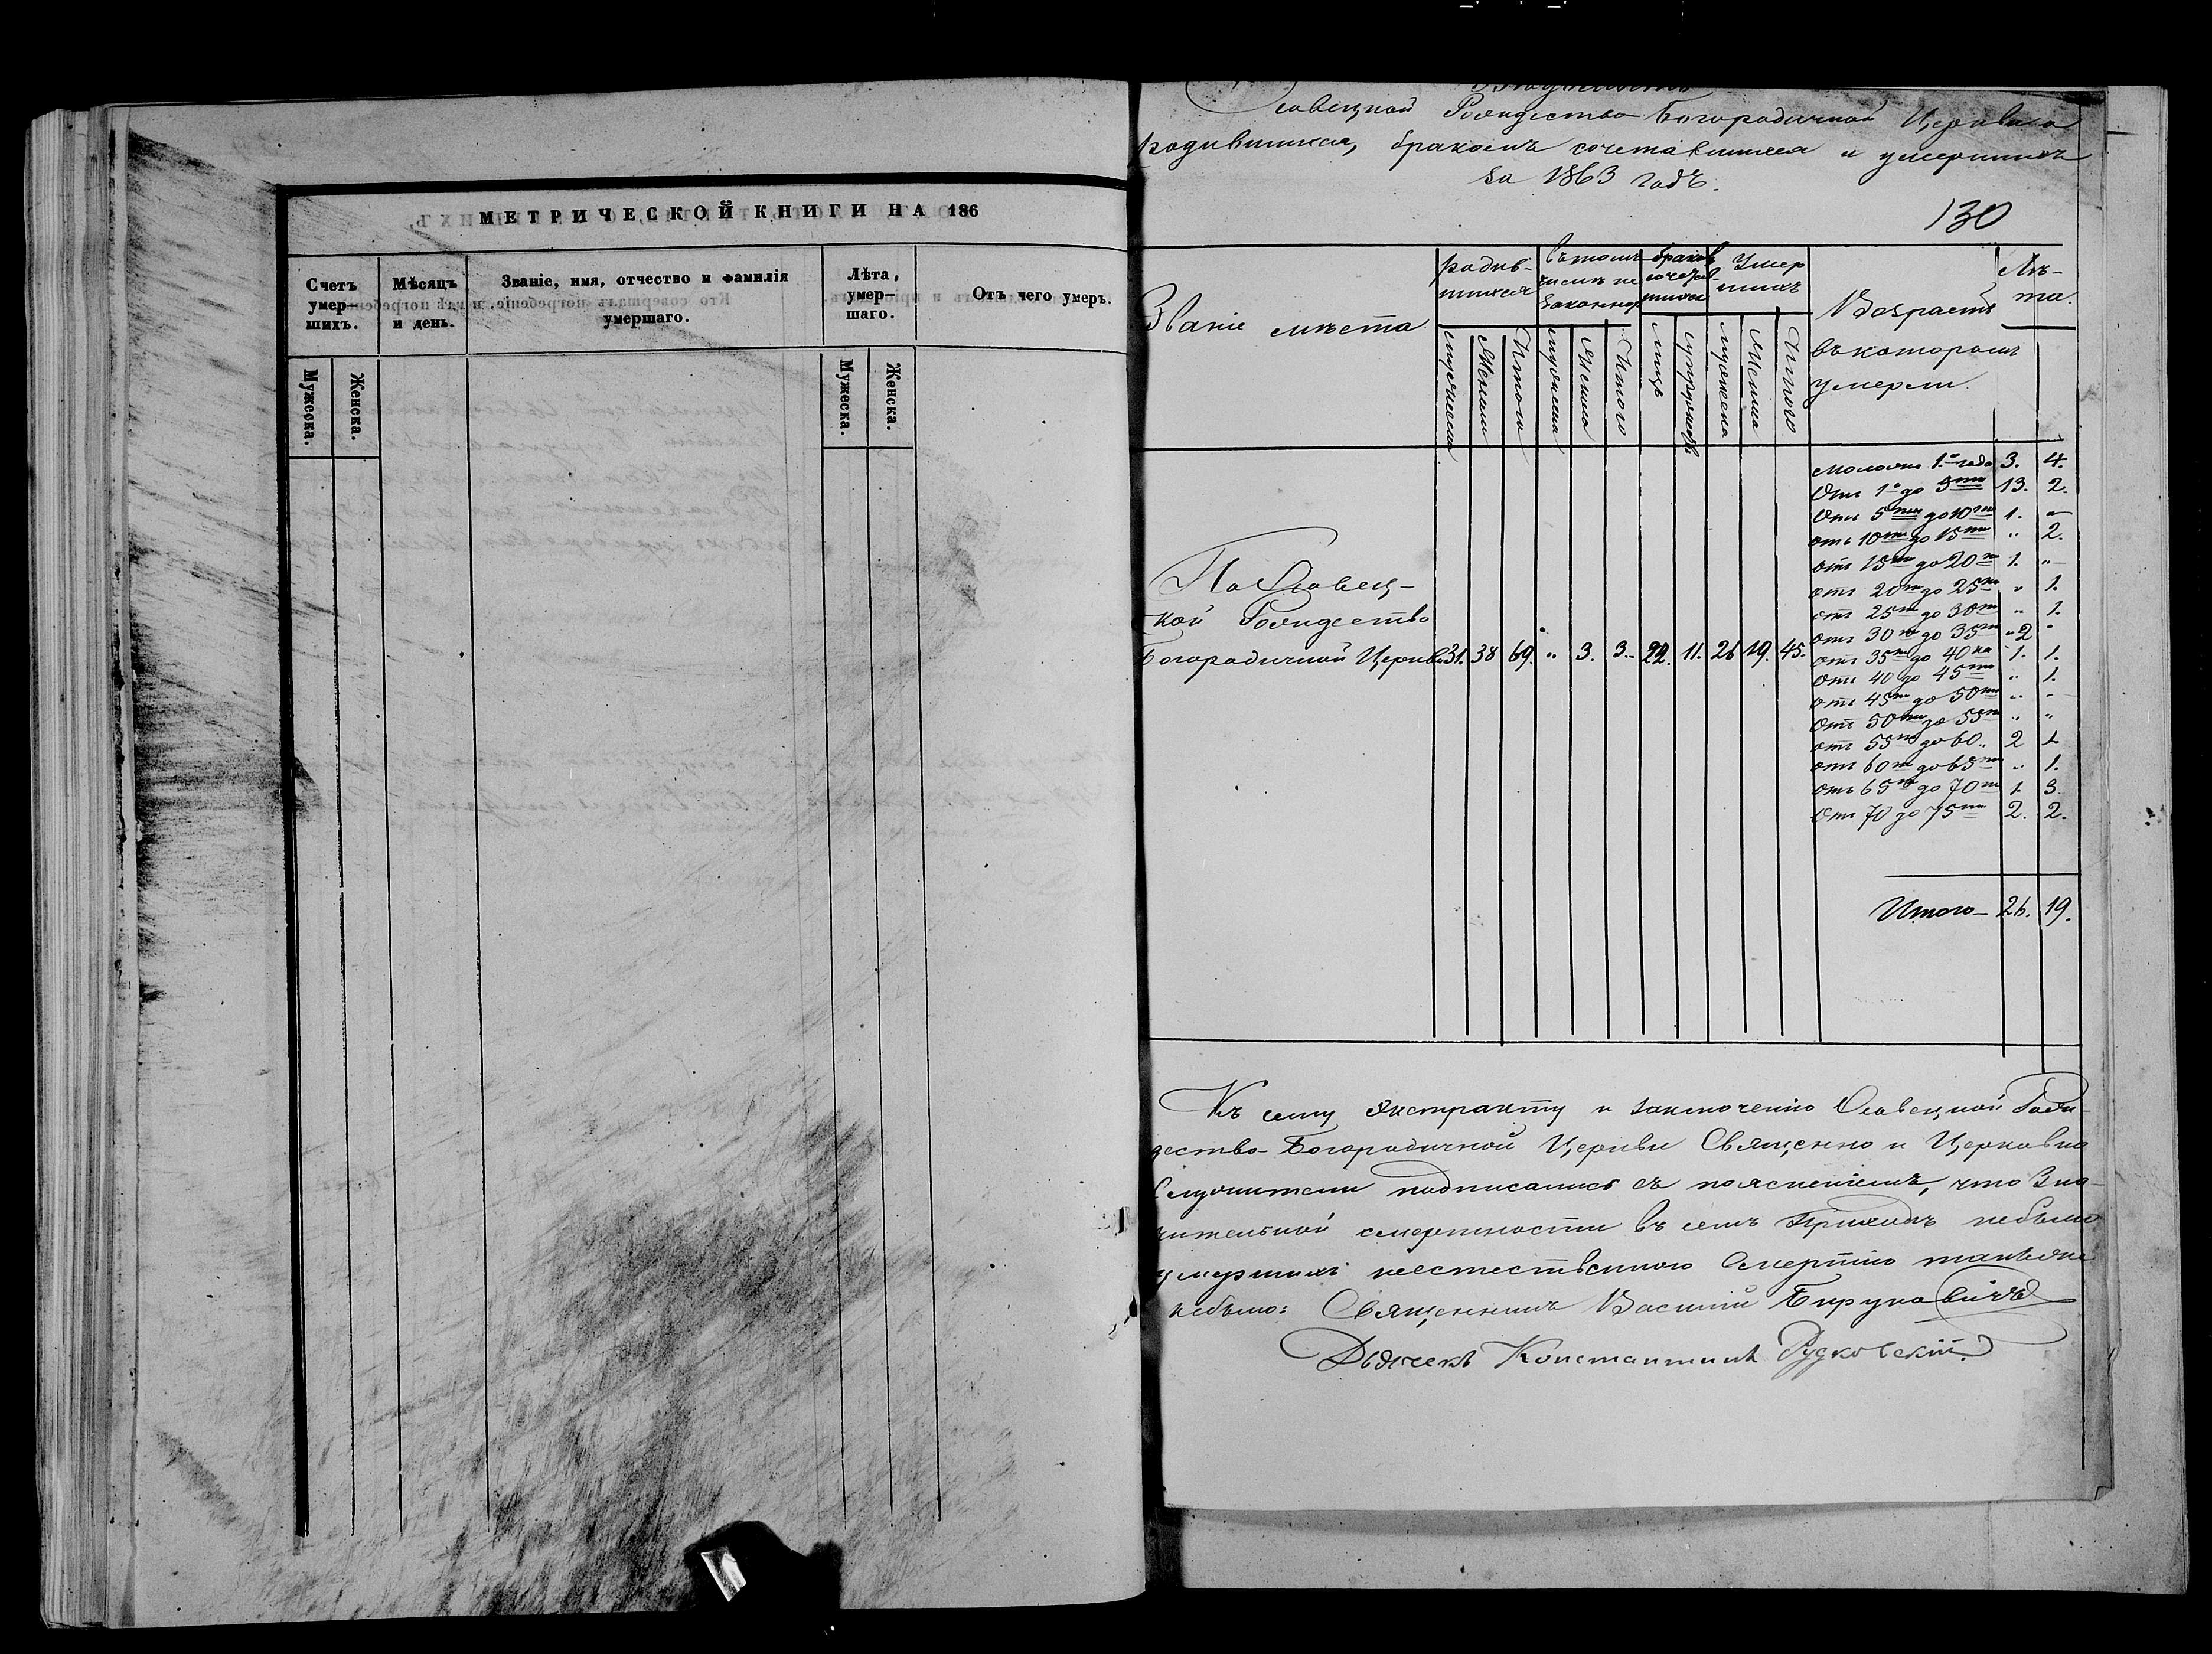 МЕТРИЧЕСКОЙ КНИГИ НА 186
Счетъ умер—шихъ.
Мѣсяцъ и день.
Званіе, имя, отчество и фамилія умершаго.
Лѣта, умер—шаго.
Отъ чего умеръ.
Мужеска.
Женска.
Мужеска.
Женска.
Рождество Богородичной Церкви о
родившихся, бракомъ сочетавшихся и умершихъ
за 1863 годъ.
130
Званіе мѣста
родив-
шихся
въ томъ
числѣ не
законнор
браком
сочетав-
шихся
Умер
шихъ
Возрастъ
въ которомъ
умерли.
Лѣ-
та.
мужеска
Женска
Итого
мужеска
Женска
Итого
лицъ
супружествъ
мужеска
Женска
Итого
По Славец-
кой Рождество
Богородичной Церкви 31. 38 69. „ 3. 3. 22. 11. 26 19. 45.
моложе 1.го года 3. 4.
Отъ 1го до 5ти 13. 2.
Отъ 5ти до 10ти 1. „
отъ 10ти до 15ти „ 2.
отъ 15ти до 20ти 1. „
отъ 20ти до 25ти „ 1.
отъ 25ти до 30ти „ 1.
отъ 30ти до 35ти 2 „
отъ 35ти до 40ка 1. 1.
Отъ 40 до 45ти „ 1.
отъ 45ти до 50ти „ „
Отъ 50ти до 55ти „ „
отъ 55ти до 60 „ 2 1
отъ 60ти до 65ти „ 1.
отъ 65ти до 70ти 1. 3.
Отъ 70 до 75ти 2. 2.
Итого— 26. 19.
Къ сему Экстракту и заключенію Славецкой Рож-
дество-Богородичной Церкви Священно и Церковно
Служители подписались съ поясненіемъ, что Зна-
чительной смертности въ семъ Приходѣ небыло
умершихъ неестественною Смертію такъже
небыло: Священникъ Василій Бируковичъ
Дьячекъ Константинъ Рудковскій.